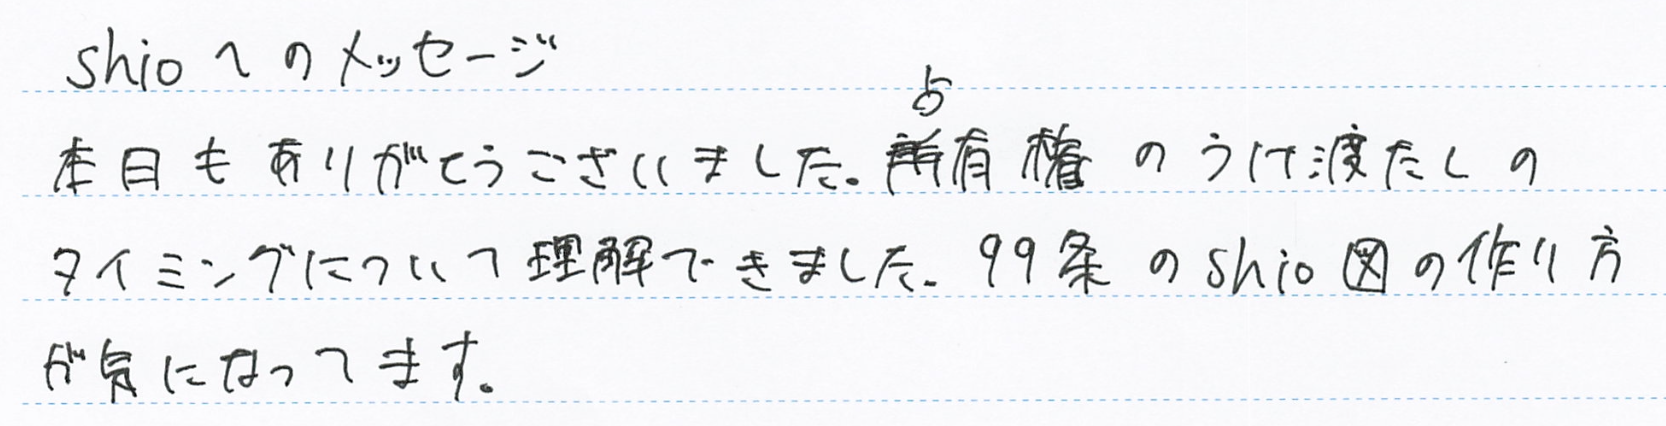 shioへのメッセージ
本日もありがとうございました。占有権のうけ渡たしの
タイミングについて理解できました。99条のshio図の作り方
が気になってます。